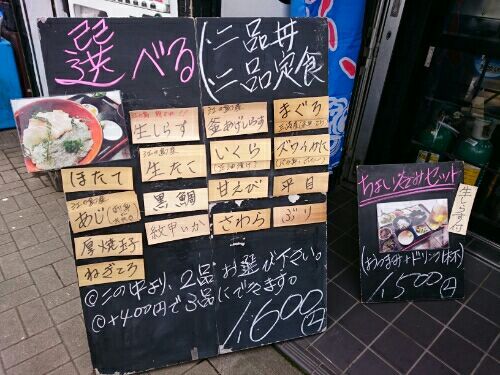 選べる
二品丼
二品定食
生しらす
釜あげしらす
まぐろ
生たこ
いくら
ズワイガニ
ほたて
黒鯛
甘えび
平目
あじ
紋甲いか
さわら
ぶり
厚焼玉子
ねぎとろ
◎この中より、2品お選び下さい。
◎+400円で3品にできます。
1,600円
ちょい呑みセット
生しらす付
(おつまみ+ドリンク1杯)
1,500円